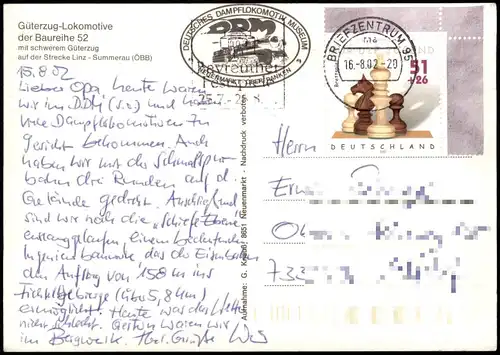 Güterzug-Lokomotive
der Baureihe 52
mit schwerem Güterzug
auf der Strecke Linz - Summerau (ÖBB)
15.8.02
Lieber Opa, heute waren
wir im DDM (s.o.) und haben
viele Dampflokomotiven zu
Gesicht bekommen. Auch
haben wir mit der Schmalspur-
bahn drei Runden auf d.
Gelände gedreht. Anschließend
sind wir noch die „Schiefe Ebene"
entlanggelaufen, einem bedeutenden
Ingenieurbauwerk, das die Eisenbahn
den Aufstieg von 158 m ins
Fichtelgebirge (übe 5,8 km)
ermöglicht. Heute war das Wetter
nicht schlecht. Gestern waren wir
im Bergwerk. Herzl. Grüße
Aufnahme: G. 8651 Neuenmarkt - Nachdruck verboten
DEUTSCHES DAMPFLOKOMOTIV MUSEUM
DDM
NEUENMARKT OBERFRANKEN
Bayreuther
BRIEFZENTRUM 95
ma
16.-8.02-20
51
+26
DEUTSCHLAND
Herrn
733